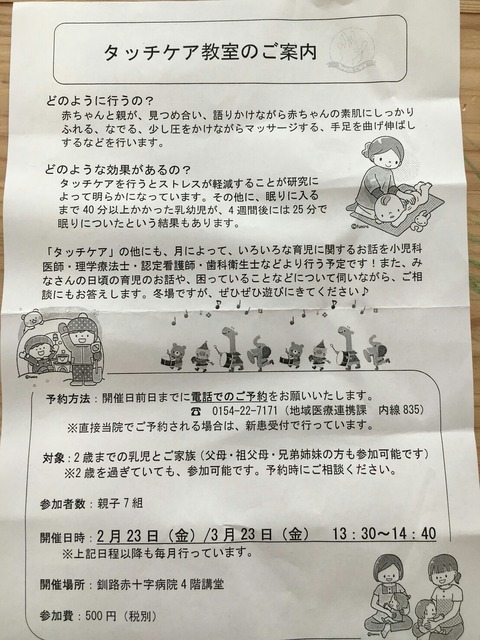 タッチケア教室のご案内
どのように行うの?
赤ちゃんと親が、見つめ合い、語りかけながら赤ちゃんの素肌にしっかり
ふれる、なでる、少し圧をかけながらマッサージする、手足を曲げ伸ばし
するなどを行います。
どのような効果があるの?
タッチケアを行うとストレスが軽減することが研究に
よって明らかになっています。その他に、眠りに入る
まで40分以上かかった乳幼児が、4週間後には25分で
眠りについたという結果もあります。
「タッチケア」の他にも、月によって、いろいろな育児に関するお話を小児科
医師・理学療法士・認定看護師・歯科衛生士などより行う予定です!また、み
なさんの日頃の育児のお話や、困っていることなどについて伺いながら、ご相
談にもお答えします。冬場ですが、ぜひぜひ遊びにきてください♪
予約方法:開催日前日までに電話でのご予約をお願いいたします。
☎ 0154-22-7171(地域医療連携課 内線835)
※直接当院でご予約される場合は、新患受付で行っています。
対象:2歳までの乳児とご家族(父母・祖父母・兄弟姉妹の方も参加可能です)
※2歳を過ぎていても、参加可能です。予約時にご相談ください。
参加者数:親子7組
開催日時:2月23日(金)/3月23日(金) 13:30～14:40
※上記日程以降も毎月行っています。
開催場所:釧路赤十字病院4階講堂
参加費:500円(税別)